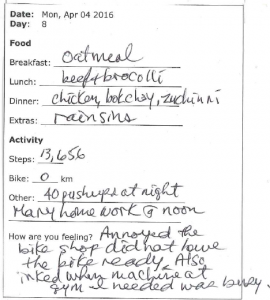 Date: Mon, Apr 04 2016
Day: 8
Food
Breakfast: oatmeal
Lunch: beef + brocolli
Dinner: chicken, bokchoy, zuchinni
Extras: rainsins
Activity
Steps: 13,656
Bike: 0 km
Other: 40 pushups at night
Mary home work @ noon
How are you feeling? Annoyed the
bike shop did not have
the bike ready. Also
irked when machine at
gym I needed was busy.